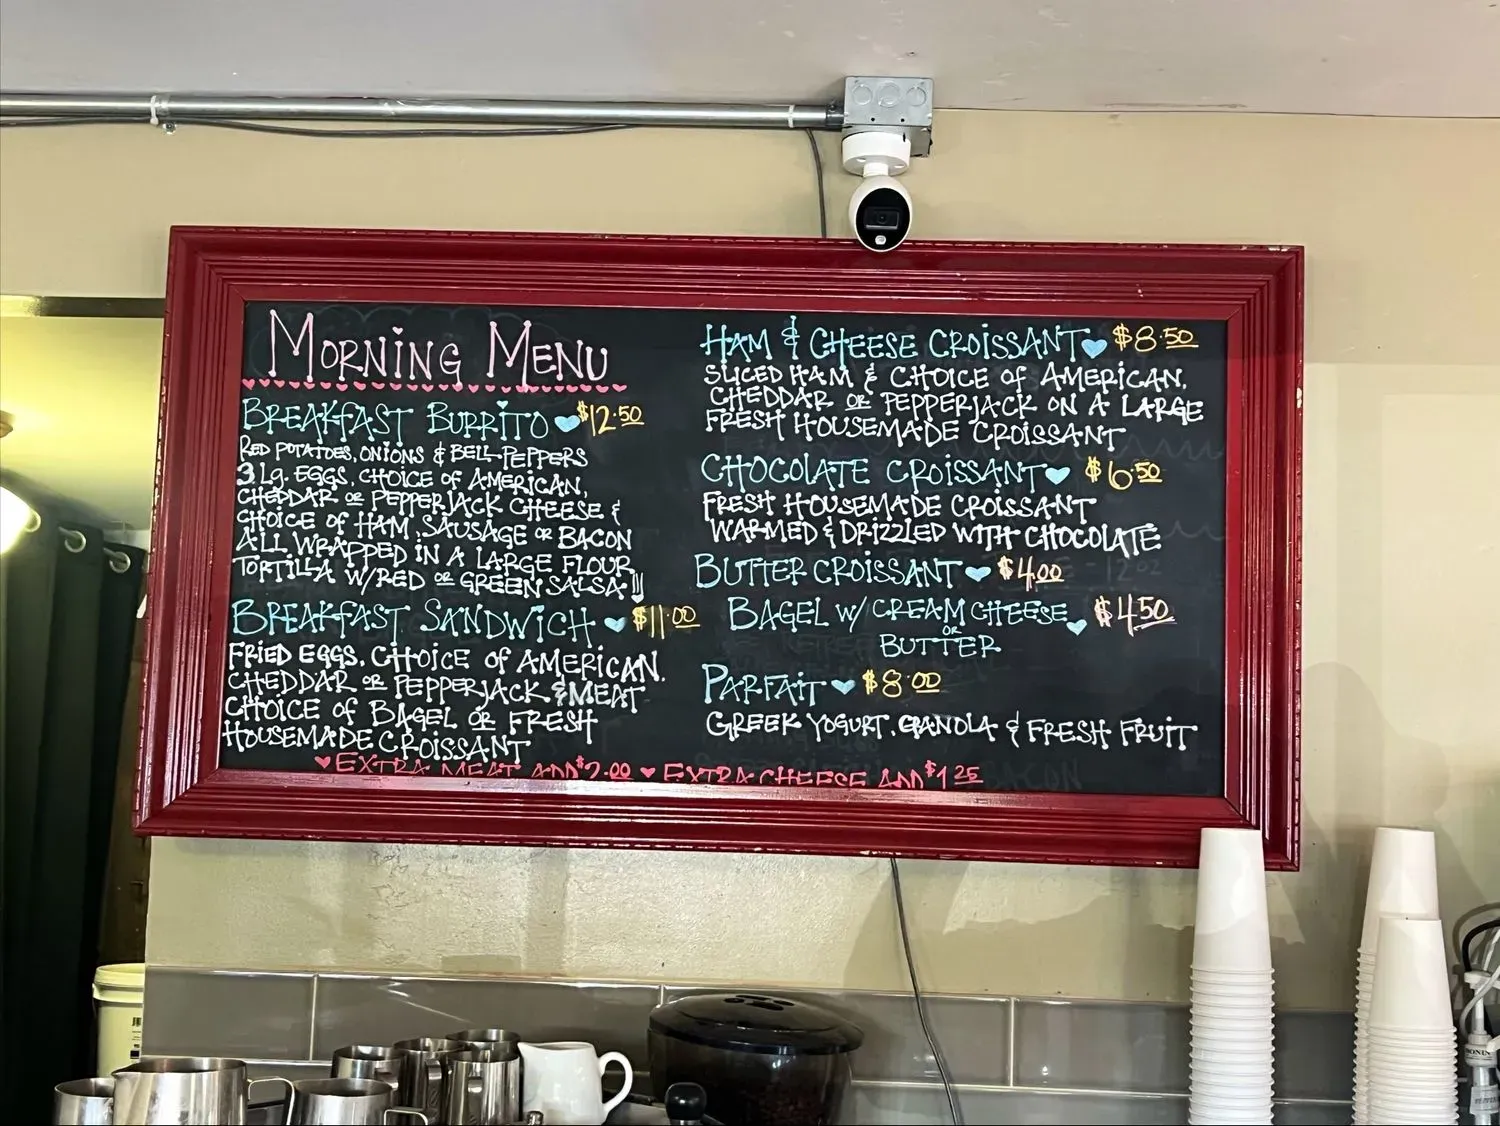 MORNING MENU
BREAKFAST BURRITO $12.50
RED POTATOES, ONIONS & BELL PEPPERS
3 Lg. EGGS, CHOICE OF AMERICAN,
CHEDDAR OR PEPPERJACK CHEESE &
CHOICE OF HAM, SAUSAGE OR BACON
ALL WRAPPED IN A LARGE FLOUR
TORTILLA W/RED OR GREEN SALSA!!!
BREAKFAST SANDWICH $11.00
FRIED EGGS, CHOICE OF AMERICAN,
CHEDDAR OR PEPPERJACK & MEAT
CHOICE OF BAGEL OR FRESH
HOUSEMADE CROISSANT
HAM & CHEESE CROISSANT $8.50
SLICED HAM & CHOICE OF AMERICAN,
CHEDDAR OR PEPPERJACK ON A LARGE
FRESH HOUSEMADE CROISSANT
CHOCOLATE CROISSANT $6.50
FRESH HOUSEMADE CROISSANT
WARMED & DRIZZLED WITH CHOCOLATE
BUTTER CROISSANT $4.00
BAGEL W/ CREAM CHEESE $4.50
OR
BUTTER
PARFAIT $8.00
GREEK YOGURT, GRANOLA & FRESH FRUIT
EXTRA MEAT ADD $2.00 EXTRA CHEESE ADD $1.25